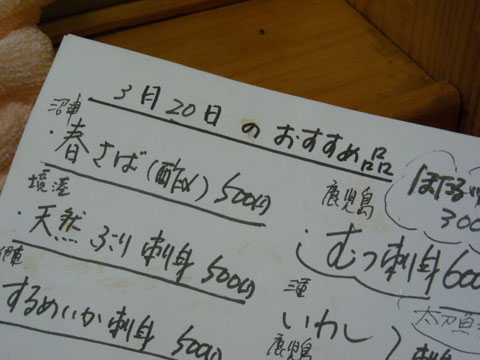 3月20日のおすすめ品
・春さば(酢〆) 500円
境港
・天然ぶり刺身 500円
するめいか刺身 500円
鹿児島
むつ刺身 600
いわし
鹿児島
ほたるい
300
太刀魚